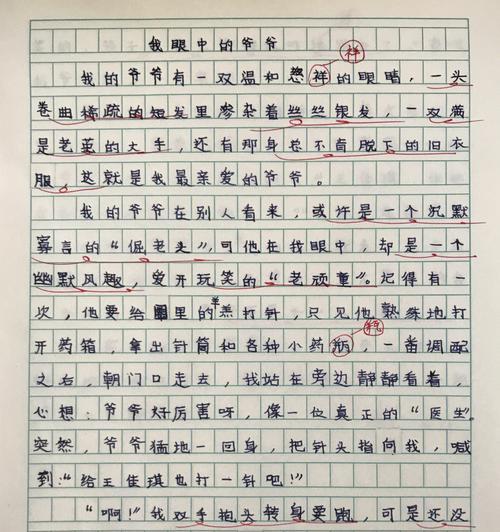 我眼中的爷爷
祥
我的爷爷有一双温和慈祥的眼睛，一头
卷曲稀疏的短发里参杂着丝丝银发，一双满
是老茧的大手，还有那身总不肯脱下的旧衣
服。这就是我最亲爱的爷爷。
我的爷爷在别人看来，或许是一个沉默
寡言的“倔老头”，可他在我眼中，却是一个
幽默风趣，爱开玩笑的“老顽童”。记得有一
次，他要给圈里的羊打针，只见他熟练地打
瓶
开药箱，拿出针筒和各种小药，一番调配
之后，朝门口走去，我站在旁边静静看着，
心想：爷爷好厉害呀，像一位真正的“医生”。
突然，爷爷猛地一回身，把针头指向我，喊
到：“给王佳琪也打一针吧！”
“啊！”我双手抱头转身要跑，可是还没